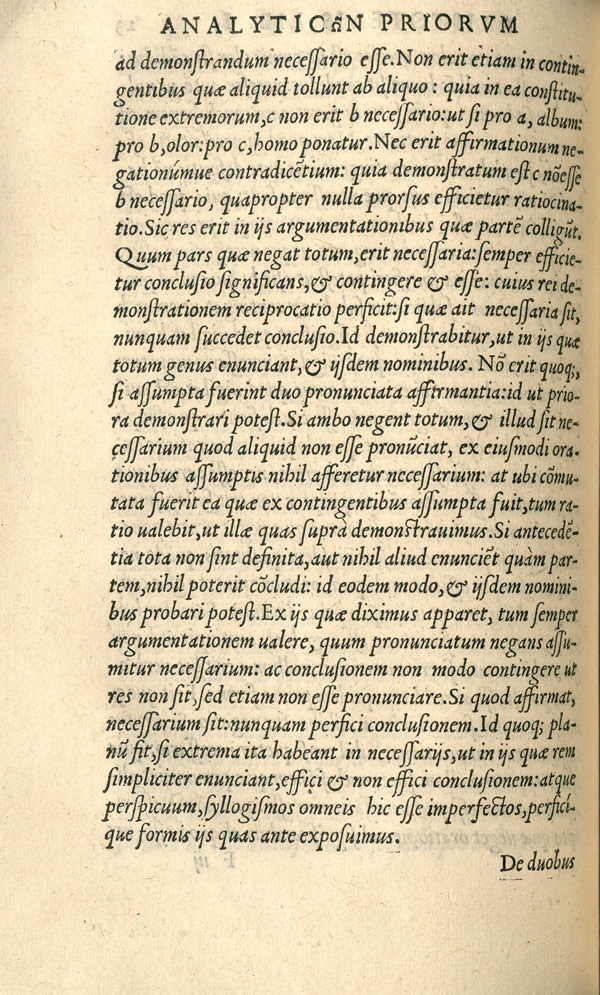 ANALYTICωN PRIORVM
ad demonſtrandum neceſſario eſſe. Non erit etiam in contin-
gentibus quæ aliquid tollunt ab aliquo: quia in ea conſtitu-
tione extremorum, c non erit b neceſſario: ut ſi pro a, album:
pro b, olor: pro c, homo ponatur. Nec erit affirmationum ne-
gationúmue contradicētium: quia demonſtratum eſt c nōeſſe
b neceſſario, quapropter nulla prorſus efficietur ratiocina-
tio. Sic res erit in ijs argumentationibus quæ partē colligūt.
Quum pars quæ negat totum, erit neceſſaria: ſemper efficie-
tur concluſio ſignificans, & contingere & eſſe: cuius rei de-
monſtrationem reciprocatio perficit: ſi quæ ait neceſſaria ſit,
nunquam ſuccedet concluſio. Id demonſtrabitur, ut in ijs quæ
totum genus enunciant, & ijſdem nominibus. Nō erit quoq;,
ſi aſſumpta fuerint duo pronunciata affirmantia: id ut prio-
ra demonſtrari poteſt. Si ambo negent totum, & illud ſit ne-
ceſſarium quod aliquid non eſſe pronūciat, ex eiuſmodi ora-
tionibus aſſumptis nihil afferetur neceſſarium: at ubi cōmu-
tata fuerit ea quæ ex contingentibus aſſumpta fuit, tum ra-
tio ualebit, ut illæ quas ſuprà demonſtrauimus. Si antecedē-
tia tota non ſint definita, aut nihil aliud enunciēt quàm par-
tem, nihil poterit cōcludi: id eodem modo, & ijſdem nomini-
bus probari poteſt. Ex ijs quæ diximus apparet, tum ſemper
argumentationem ualere, quum pronunciatum negans aſſu-
mitur neceſſarium: ac concluſionem non modo contingere ut
res non ſit, ſed etiam non eſſe pronunciare. Si quod affirmat,
neceſſarium ſit: nunquam perfici concluſionem. Id quoq; pla-
nū fit, ſi extrema ita habeant in neceſſarijs, ut in ijs quæ rem
ſimpliciter enunciant, effici & non effici concluſionem: atque
perſpicuum, ſyllogiſmos omneis hic eſſe imperfectos, perfici-
que formis ijs quas ante expoſuimus.
De duobus